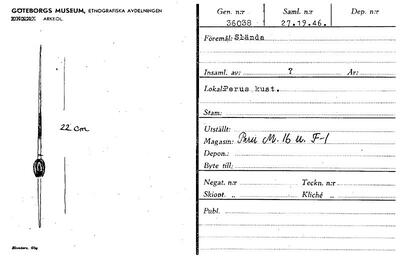 GÖTEBORGS MUSEUM, ETNOGRAFISKA AVDELNINGEN
ARKEOL.
22 cm
Gen. n:r Saml. n:r Dep. n:r
36038 27.19.46.
Föremål: Slända
Insaml. av: ? År:
Lokal: Perus kust.
Stam:
Utställt:
Magasin: Peru M. 16 u. F-1
Depon.:
Byte till:
Negat. n:r Teckn. n:r
Skiopt. „ Kliché „
Publ.